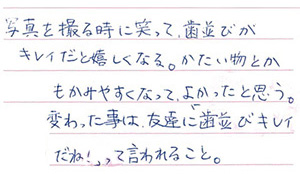 写真を撮る時に笑って、歯並びが
キレイだと嬉しくなる。かたい物とか
もかみやすくなって、よかったと思う。
変わった事は、友達に歯並びキレイ
だね!、って言われること。